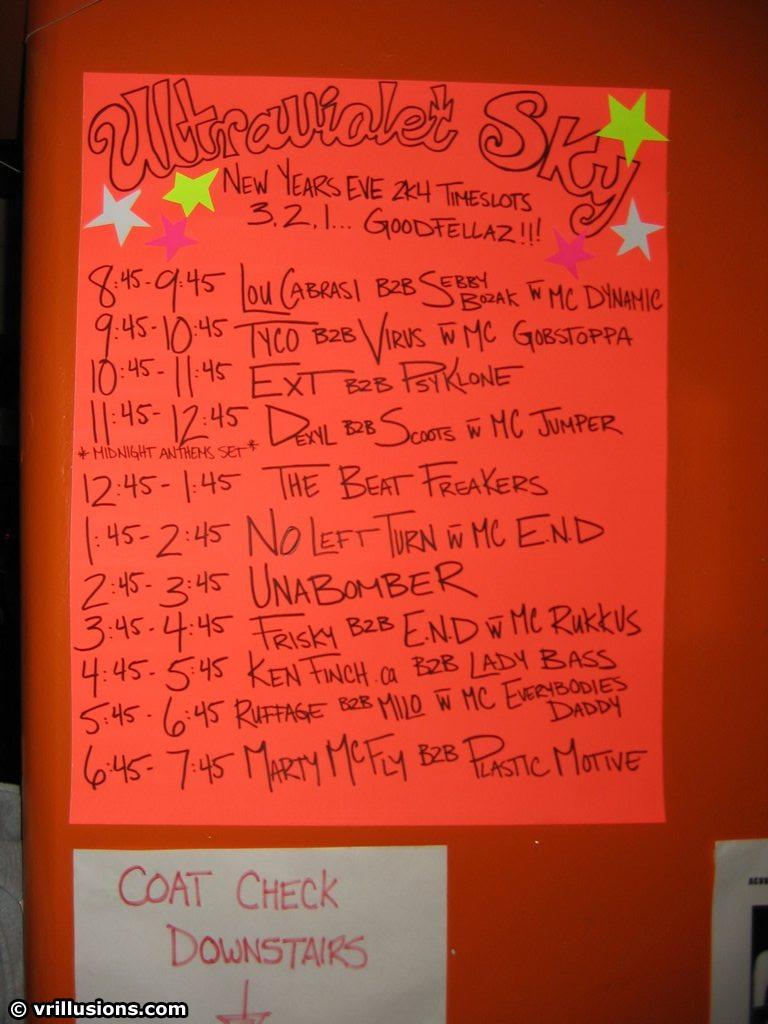 Ultraviolet Sky
NEW YEARS EVE 2K4 TIMESLOTS
3, 2, 1... GOODFELLAZ!!!
8:45-9:45 LOU CABRASI B2B SEBBY BOZAK W MC DYNAMIC
9:45-10:45 TYCO B2B VIRUS W MC GOBSTOPPA
10:45-11:45 EXT B2B PSYKLONE
11:45-12:45 DEXYL B2B SCOOTS W MC JUMPER
* MIDNIGHT ANTHEMS SET *
12:45-1:45 THE BEAT FREAKERS
1:45-2:45 NO LEFT TURN W MC E.N.D
2:45-3:45 UNABOMBER
3:45-4:45 FRISKY B2B E.N.D W MC RUKKUS
4:45-5:45 KEN FINCH.ca B2B LADY BASS
5:45-6:45 RUFFAGE B2B MILO W MC EVERYBODIES DADDY
6:45-7:45 MARTY MCFLY B2B PLASTIC MOTIVE
COAT CHECK
DOWNSTAIRS
© vrillusions.com